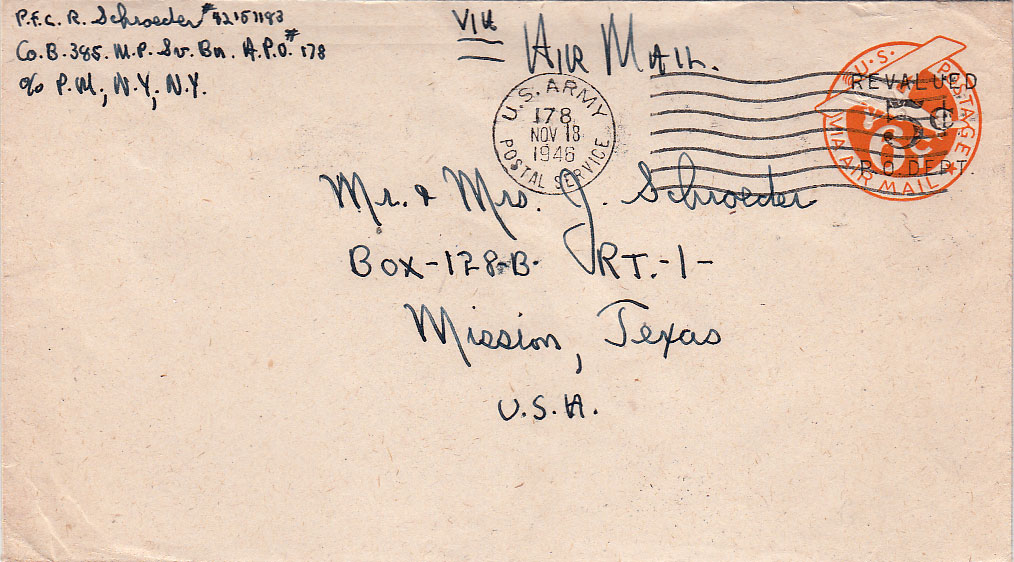 P.F.C. R. Schroeder # 42151183
Co. B. 385. M.P. Sv. Bn. A.P.O.# 178
c/o P.M., N.Y., N.Y.
VIA
AIR MAIL.
U.S. ARMY
178
NOV 18
1946
POSTAL SERVICE
U.S. POSTAGE
REVALUED
5¢
6c
P.O. DEPT.
VIA AIR MAIL
Mr. & Mrs. J. Schroeder
Box-128-B- RT.-1-
Mission, Texas
U.S.A.